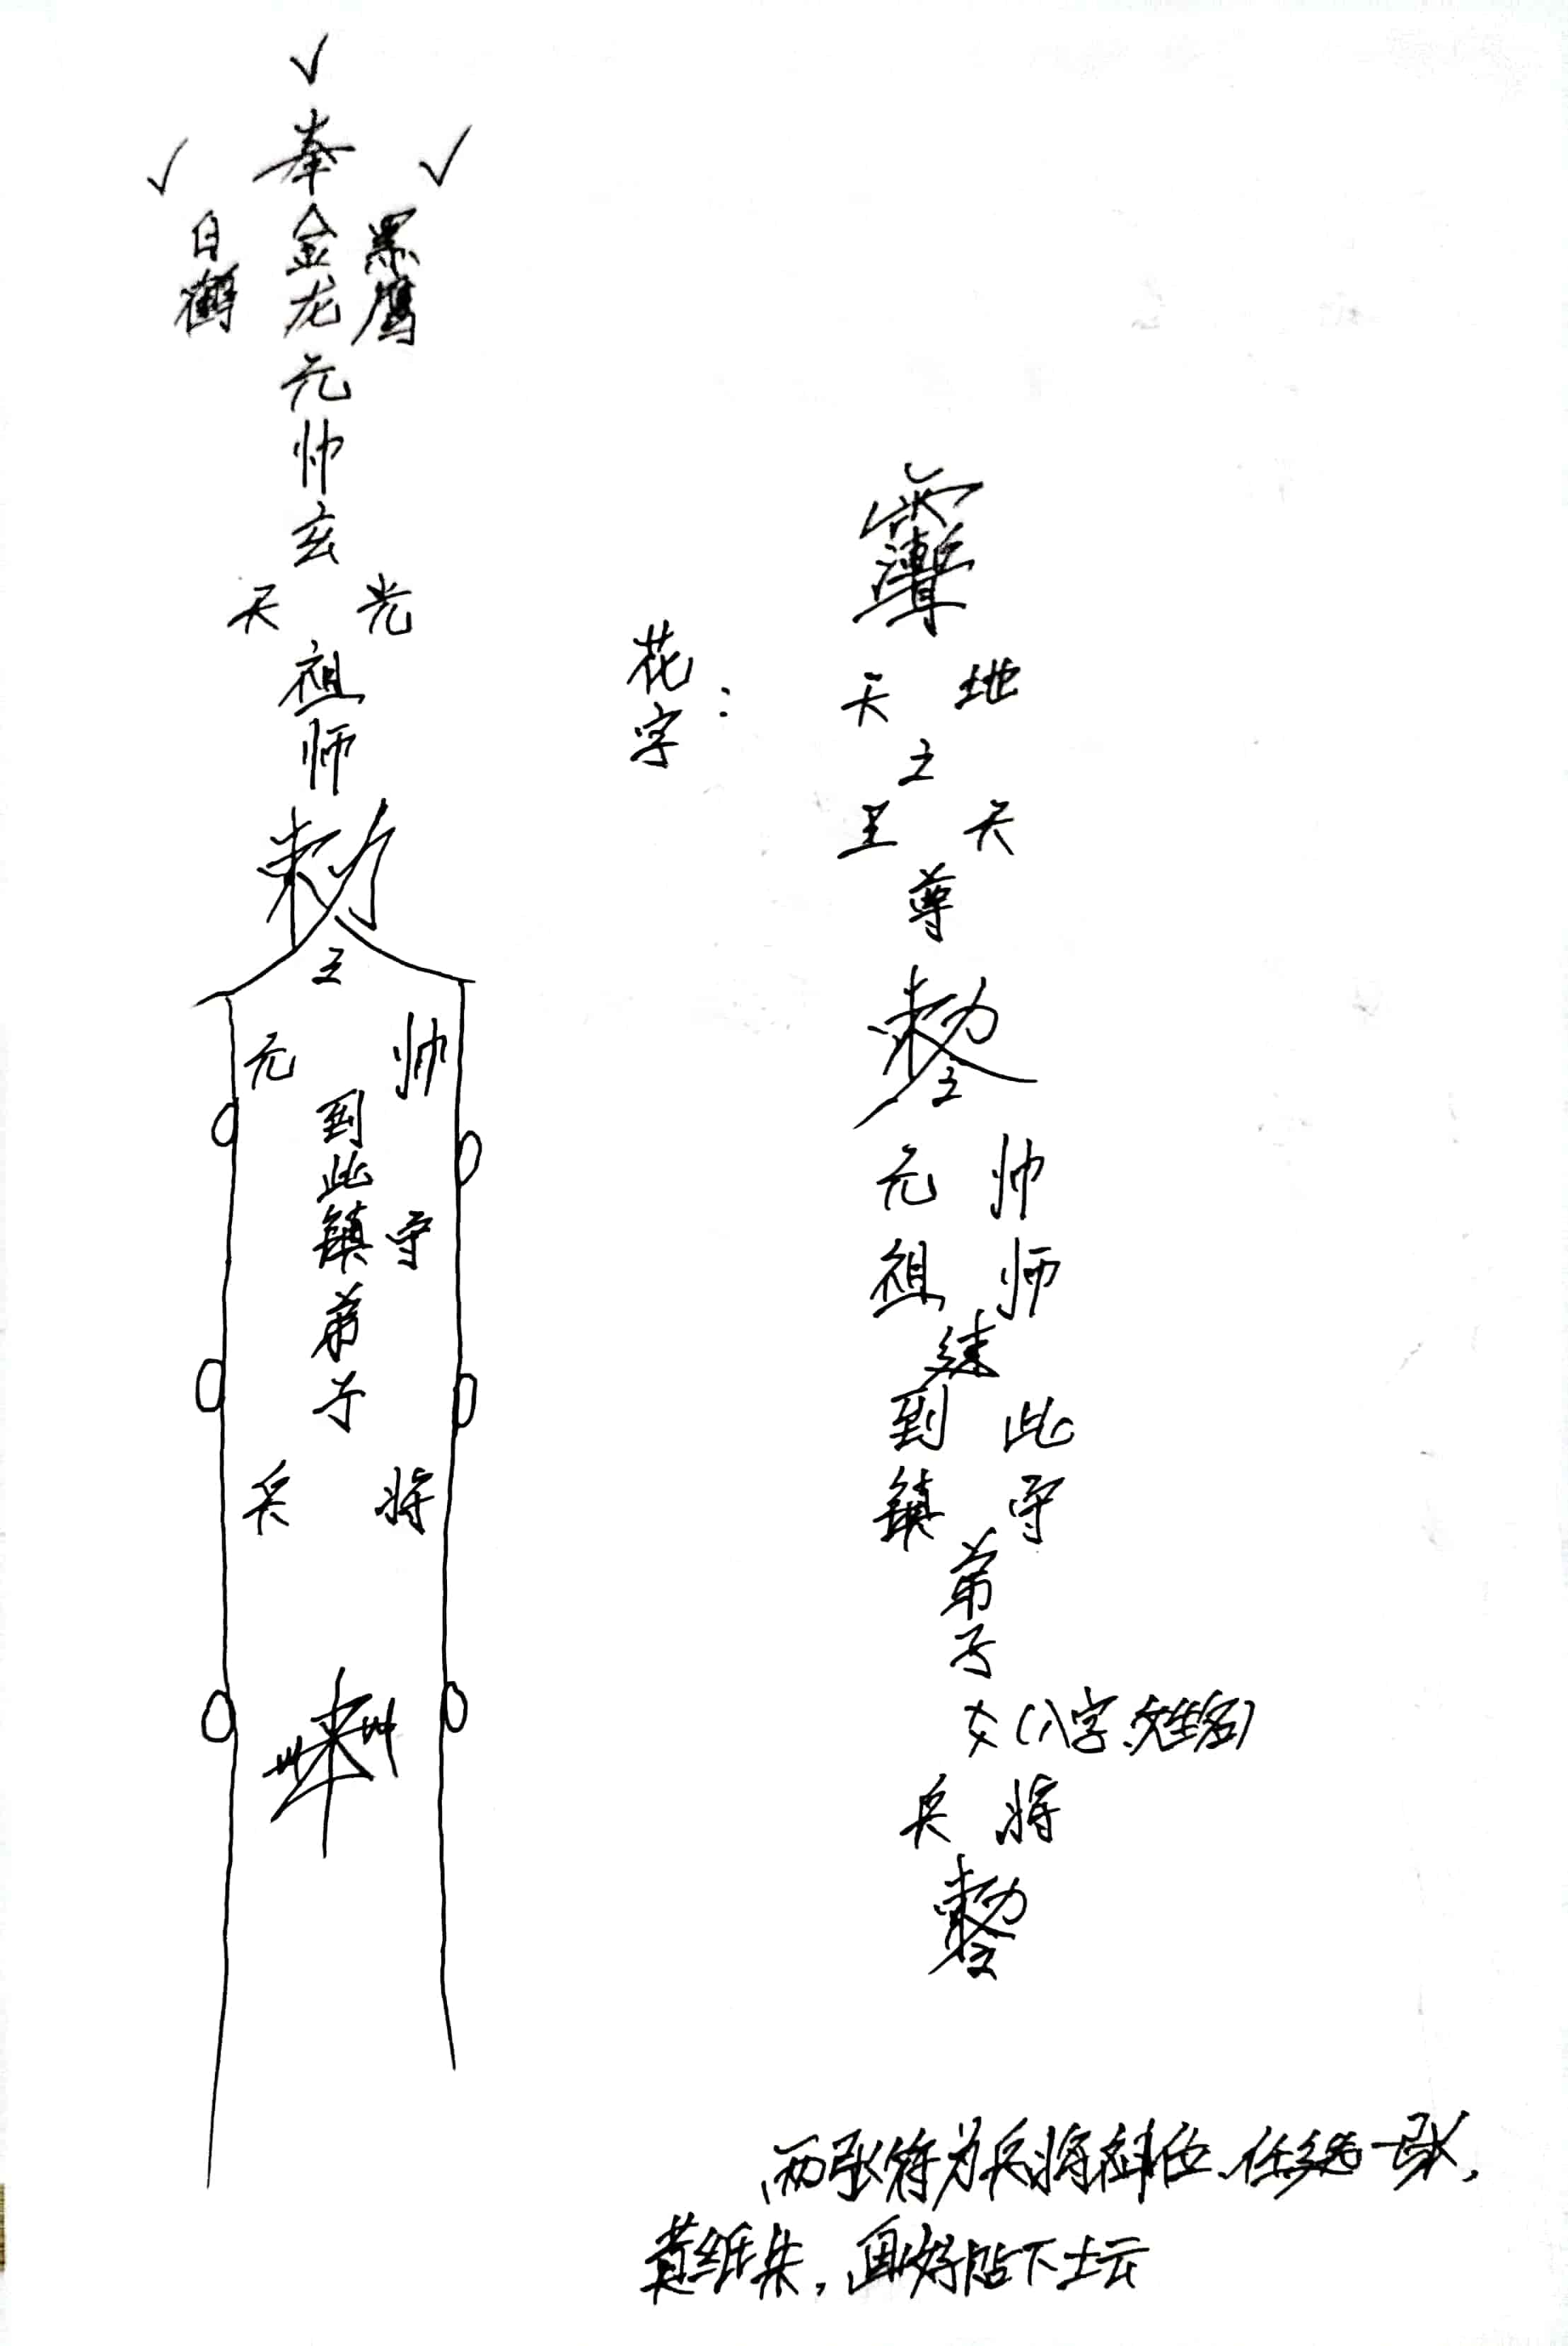 奉
白鹤 金龙 黑鹰
元
帅
玄
天 光
祖
师
敕
五
元 帅
到
此
镇 守
弟
子
兵 将
花字：
天 地
之
王 天
尊
敕
五
元 帅
祖 师
速
到 此
镇 守
弟
子
女（八字、姓名）
兵 将
敕
两张符为兵将神位、任选一张，
黄纸朱，画好贴下坛